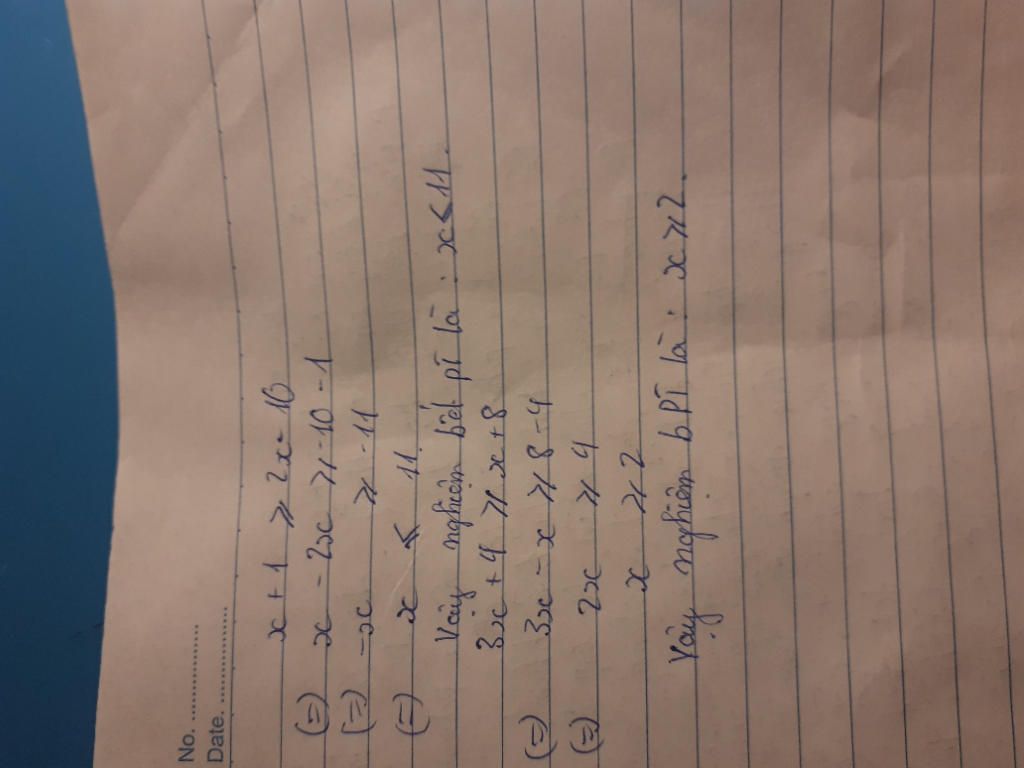 No. ..................
Date. ..................
x + 1 ⩾ 2x - 10
(=) x - 2x ⩾ -10 - 1
(=) -x ⩾ -11
(=) x ⩽ 11.
Vậy nghiệm bất pt là : x ⩽ 11.
3x + 4 ⩾ x + 8
(=) 3x - x ⩾ 8 - 4
(=) 2x ⩾ 4
x ⩾ 2
Vậy nghiệm bpt là : x ⩾ 2.